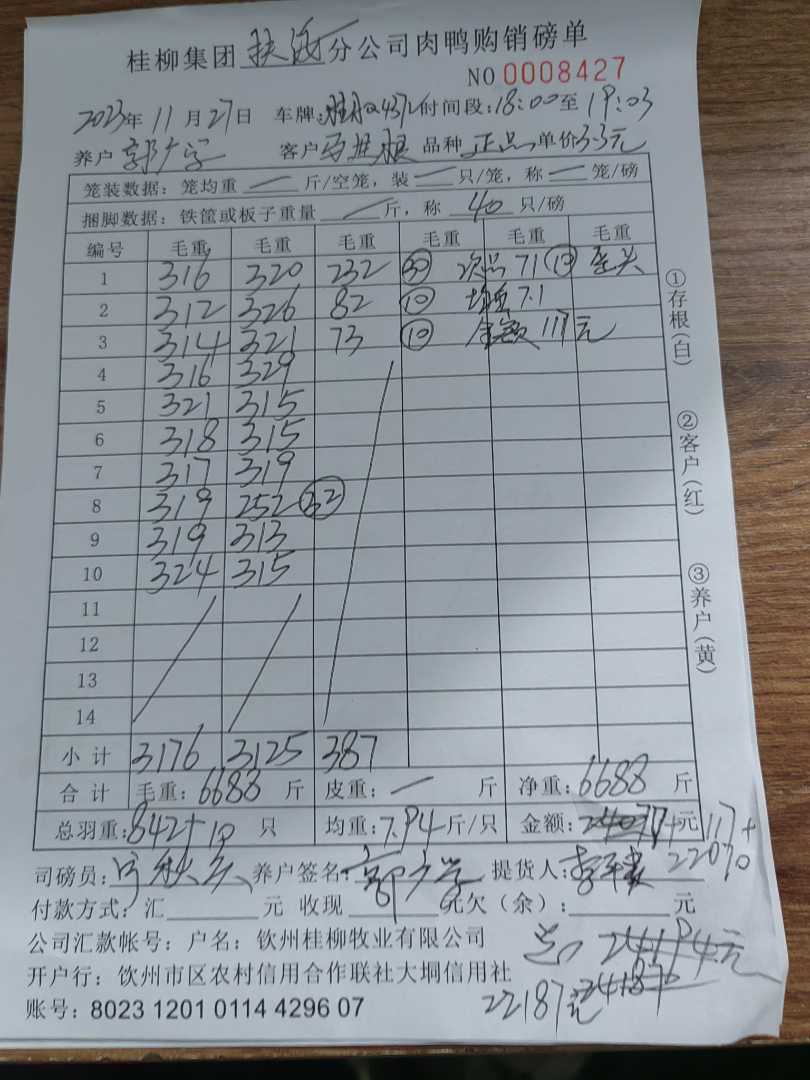 桂柳集团扶绥分公司肉鸭购销磅单
NO 0008427
2023年11月27日 车牌: 时间段:18:00至19:03
养户 客户 品种 正品 单价3.3元
笼装数据: 笼均重 — 斤/空笼, 装 — 只/笼, 称 — 笼/磅
捆脚数据: 铁筐或板子重量 — 斤, 称 40 只/磅
编号 毛重 毛重 毛重 毛重 毛重 毛重
1 316 320 232 30 次品 71 10
2 312 326 82 10 均重 7.1
3 314 321 73 10 金额 117元
4 316 329
5 321 315
6 318 315
7 317 319
8 319 252 32
9 319 313
10 324 315
11
12
13
14
小计 3176 3125 387
合计 毛重: 6688 斤 皮重: — 斤 净重: 6688 斤
总羽重: 842+10 只 均重: 7.94 斤/只 金额: 元 117+
22070
司磅员: 养户签名: 提货人:
付款方式: 汇 元 收现 元欠(余): 元
公司汇款帐号: 户名: 钦州桂柳牧业有限公司
开户行: 钦州市区农村信用合作联社大垌信用社
账号: 8023 1201 0114 4296 07
22187元
①存根(白)
②客户(红)
③养户(黄)